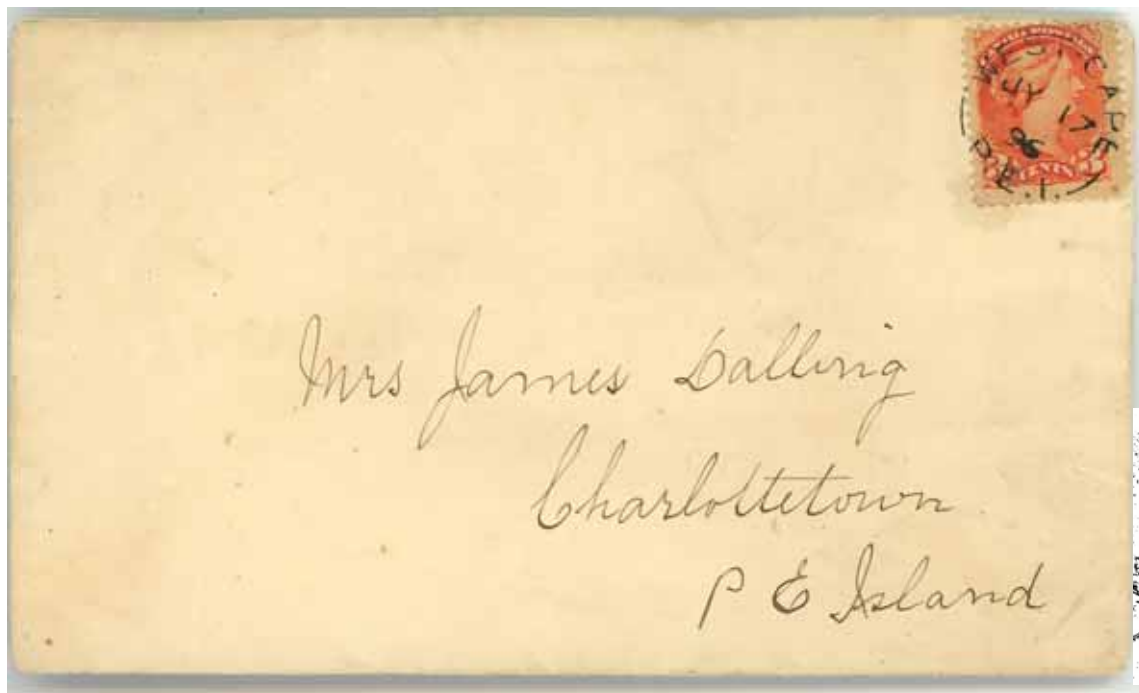 WEST CAPE
JY 17
96
P.E.I.
Mrs James Dalling
Charlottetown
P E Island